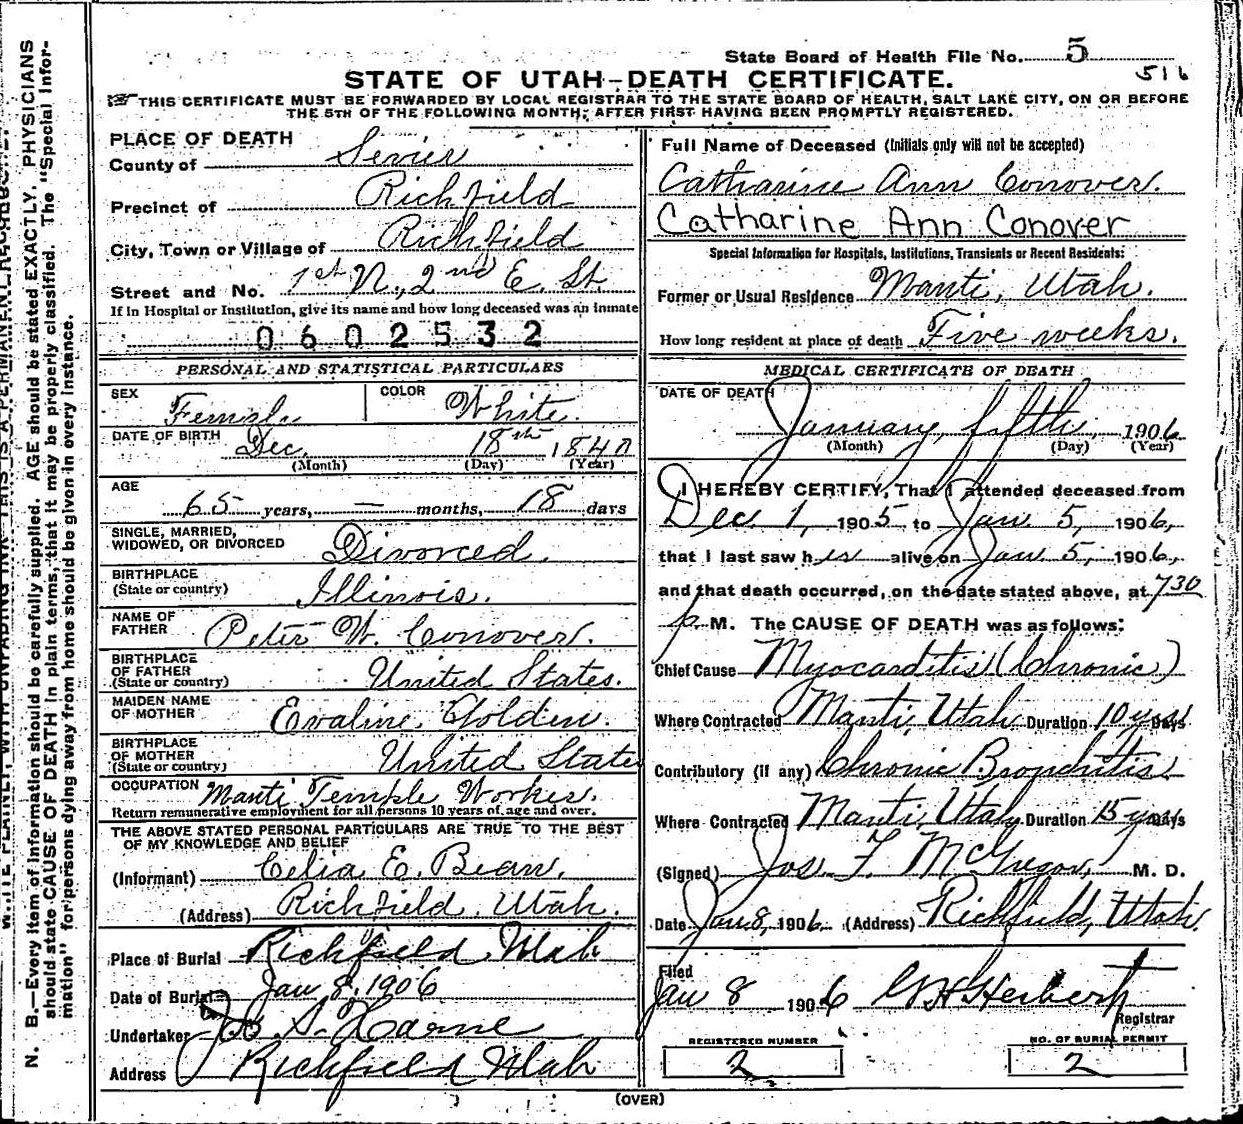 State Board of Health File No. 5
516
STATE OF UTAH-DEATH CERTIFICATE.
THIS CERTIFICATE MUST BE FORWARDED BY LOCAL REGISTRAR TO THE STATE BOARD OF HEALTH, SALT LAKE CITY, ON OR BEFORE
THE 5TH OF THE FOLLOWING MONTH; AFTER FIRST HAVING BEEN PROMPTLY REGISTERED.
PLACE OF DEATH
County of Sevier
Precinct of Richfield
City, Town or Village of Richfield
Street and No. 1st N., 2nd E. St
If in Hospital or Institution, give its name and how long deceased was an inmate
0602532
PERSONAL AND STATISTICAL PARTICULARS
SEX Female COLOR White.
DATE OF BIRTH Dec. 18th 1840
(Month) (Day) (Year)
AGE
65 years, — months, 18 days
SINGLE, MARRIED,
WIDOWED, OR DIVORCED Divorced.
BIRTHPLACE
(State or country) Illinois.
NAME OF
FATHER Peter W. Conover.
BIRTHPLACE
OF FATHER
(State or country) United States.
MAIDEN NAME
OF MOTHER Evaline Golden.
BIRTHPLACE
OF MOTHER
(State or country) United States
OCCUPATION Manti Temple Worker.
Return remunerative employment for all persons 10 years of age and over.
THE ABOVE STATED PERSONAL PARTICULARS ARE TRUE TO THE BEST
OF MY KNOWLEDGE AND BELIEF
(Informant) Celia E. Bean.
(Address) Richfield, Utah.
Place of Burial Richfield Utah
Date of Burial Jan 8, 1906
Undertaker
Address Richfield Utah
Full Name of Deceased (Initials only will not be accepted)
Catharine Ann Conover.
Catharine Ann Conover
Special Information for Hospitals, Institutions, Transients or Recent Residents:
Former or Usual Residence Manti, Utah.
How long resident at place of death Five weeks.
MEDICAL CERTIFICATE OF DEATH
DATE OF DEATH
January fifth, 1906
(Month) (Day) (Year)
I HEREBY CERTIFY, That I attended deceased from
Dec. 1, 1905 to Jan. 5, 1906,
that I last saw her alive on Jan. 5, 1906,
and that death occurred, on the date stated above, at 730
p. M. The CAUSE OF DEATH was as follows:
Chief Cause Myocarditis (Chronic)
Where Contracted Manti, Utah Duration 10 yrs Days
Contributory (if any) Chronic Bronchitis
Where Contracted Manti, Utah Duration 15 years Days
(Signed) Jos. F. McGregor, M. D.
Date Jan 8, 1906. (Address) Richfield, Utah
Filed
Jan 8 1906 Herbert
Registrar
REGISTERED NUMBER
2
NO. OF BURIAL PERMIT
2
(OVER)
N. B.—Every item of information should be carefully supplied. AGE should be stated EXACTLY. PHYSICIANS
should state CAUSE OF DEATH in plain terms, that it may be properly classified. The "Special Infor-
mation" for persons dying away from home should be given in every instance.